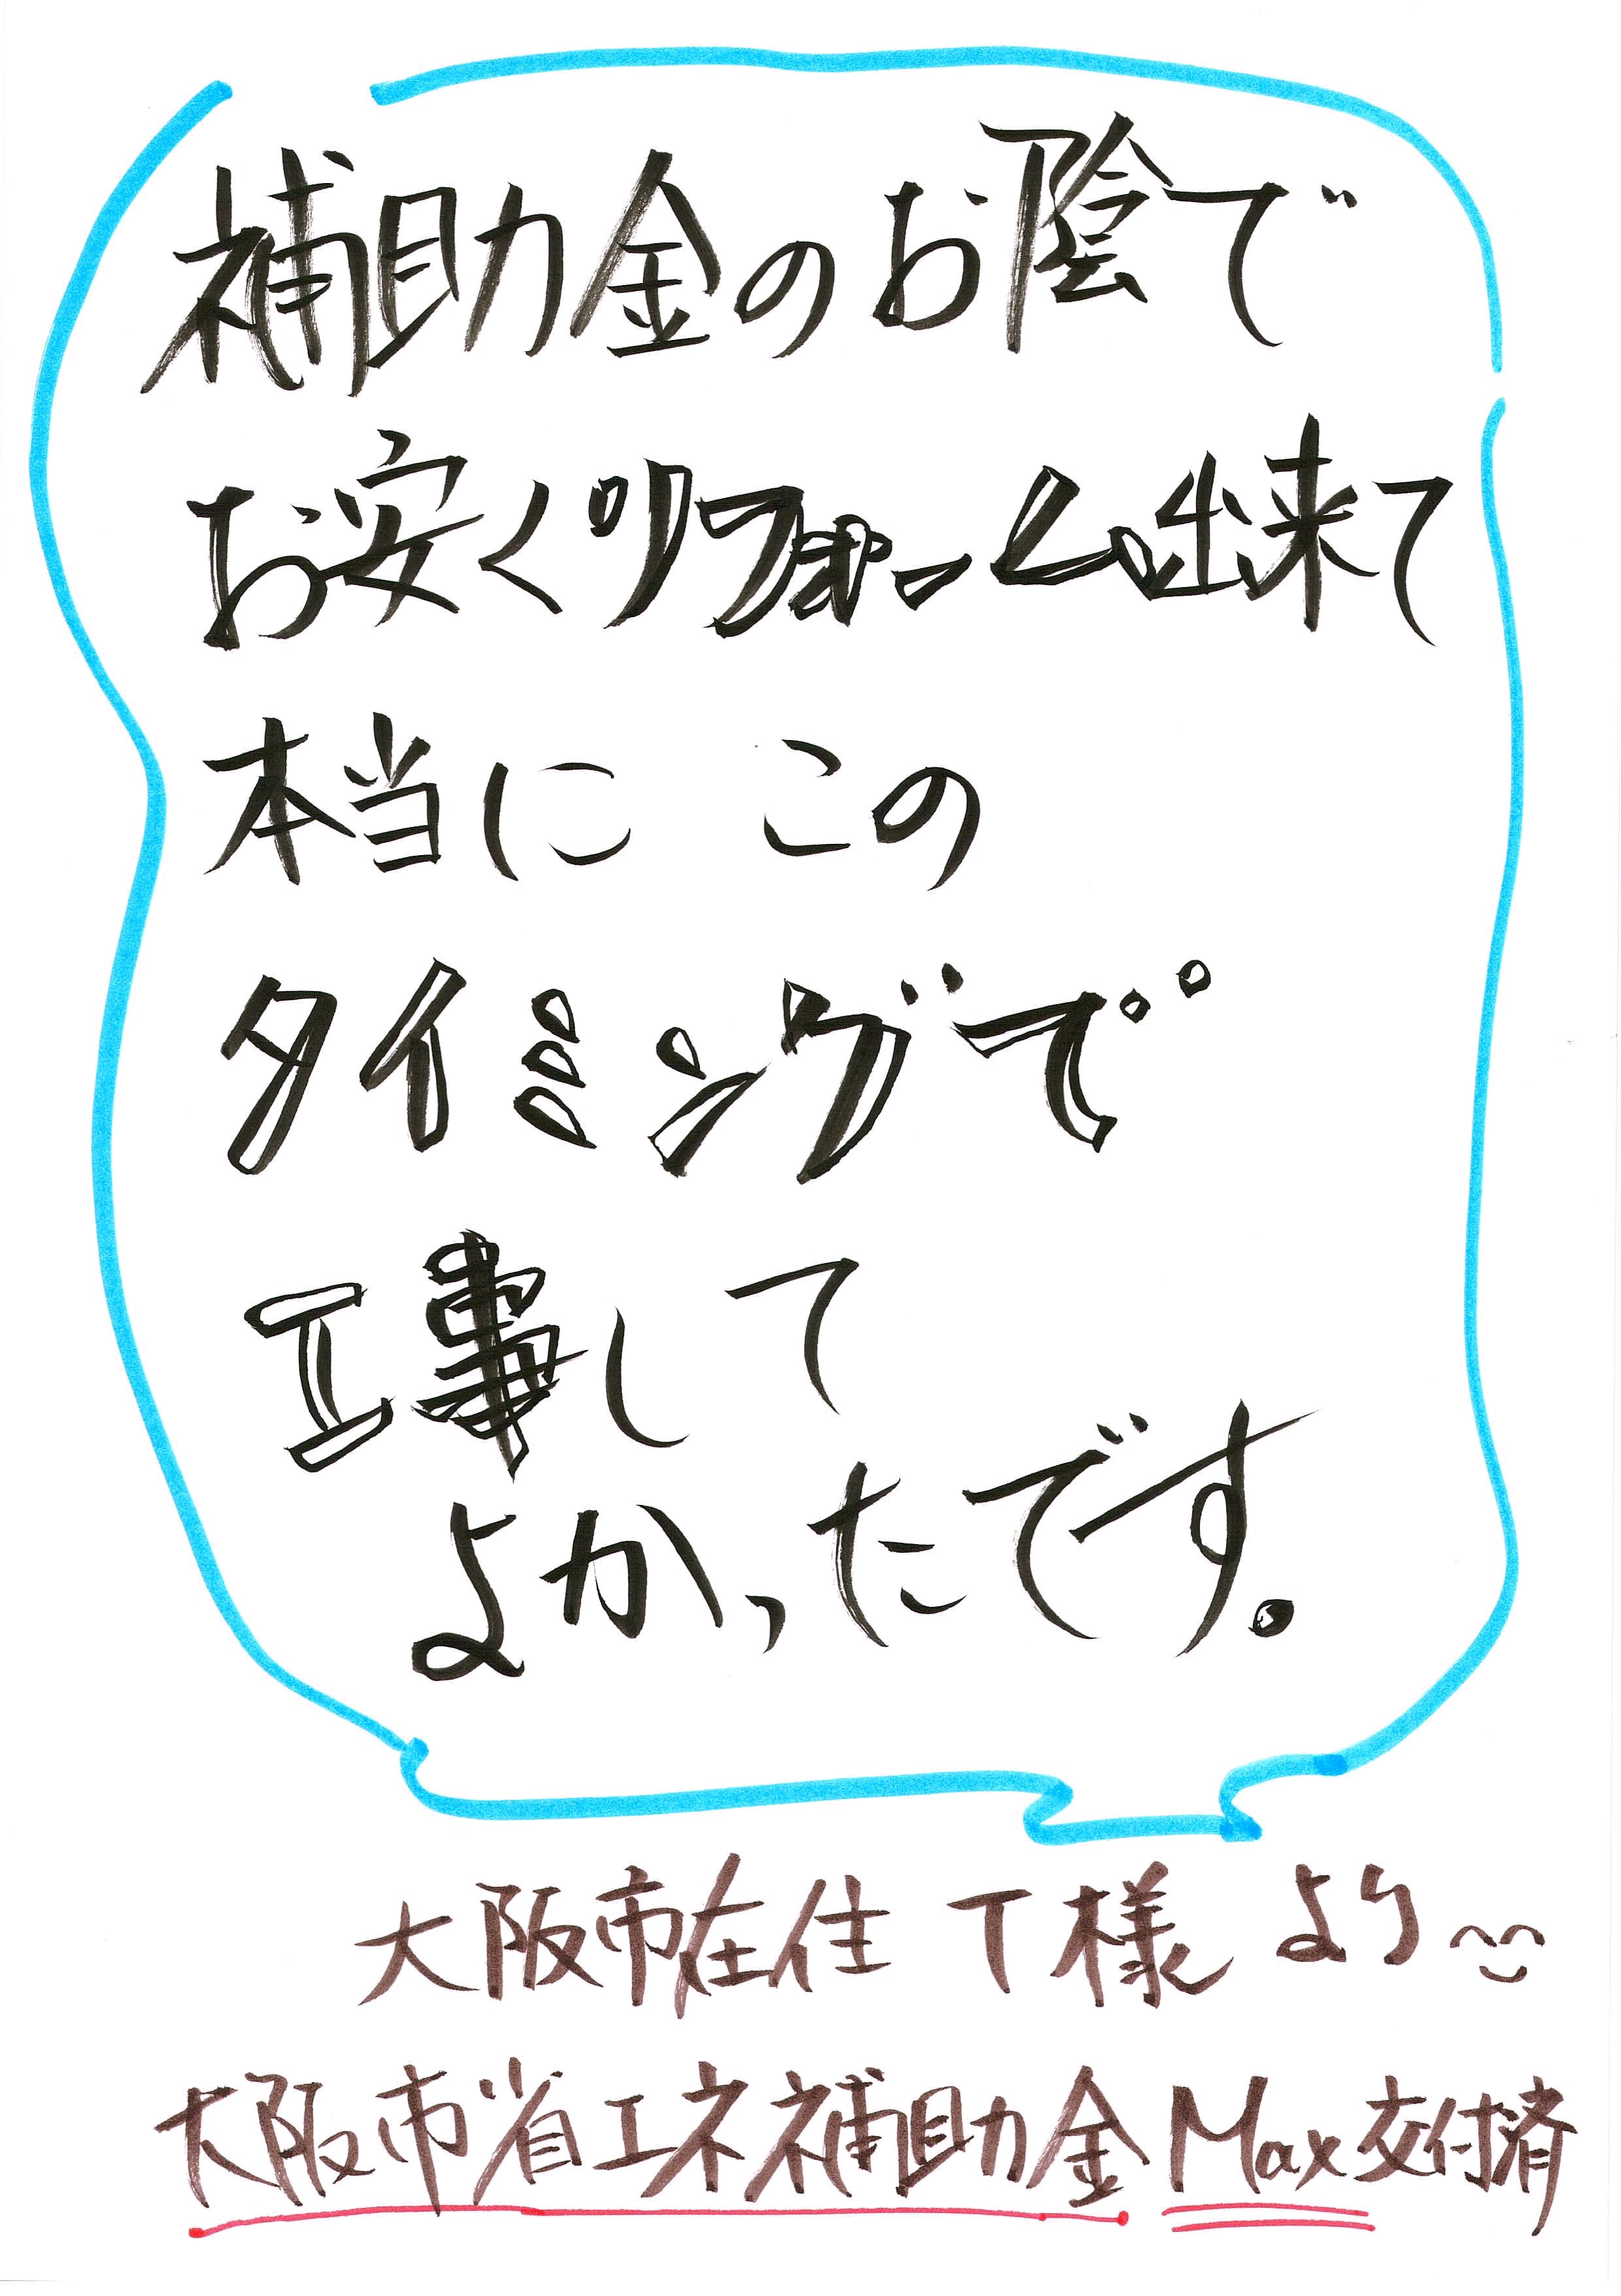 補助金のお陰で
お安くリフォーム出来て
本当に この
タイミングで
工事して
よかったです。
大阪市在住 T様 より
大阪市省エネ補助金 Max交付済